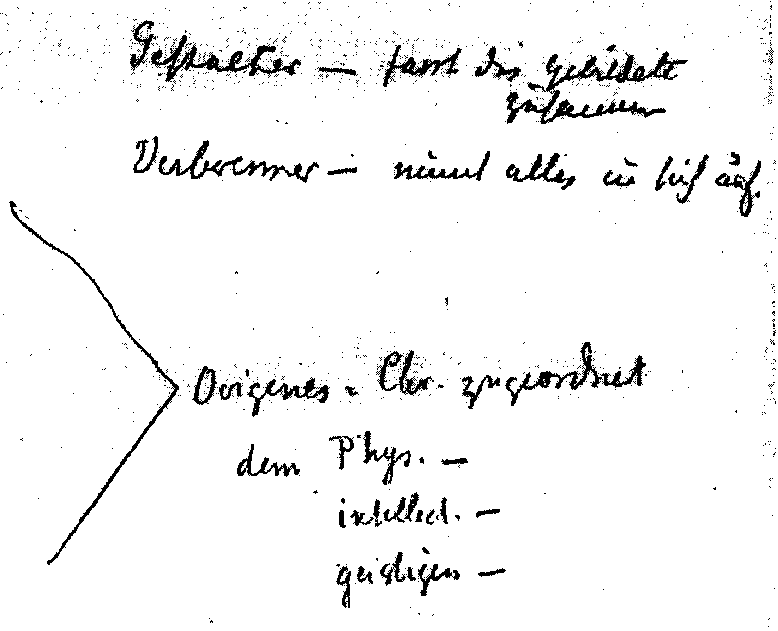 Gestalter — fasst das gebildete
zusammen
Verbrenner — nimmt alles in sich auf.
Origenes. Chr. zugeordnet
dem Phys. —
intellect. —
geistigen —